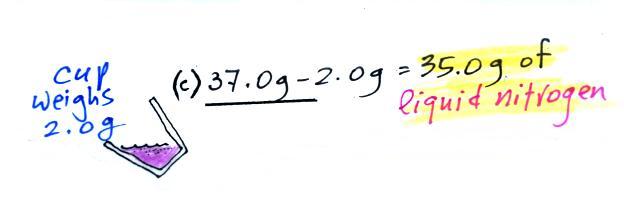 cup
weighs
2.0g
(c) 37.0g-2.0g = 35.0g of
liquid nitrogen